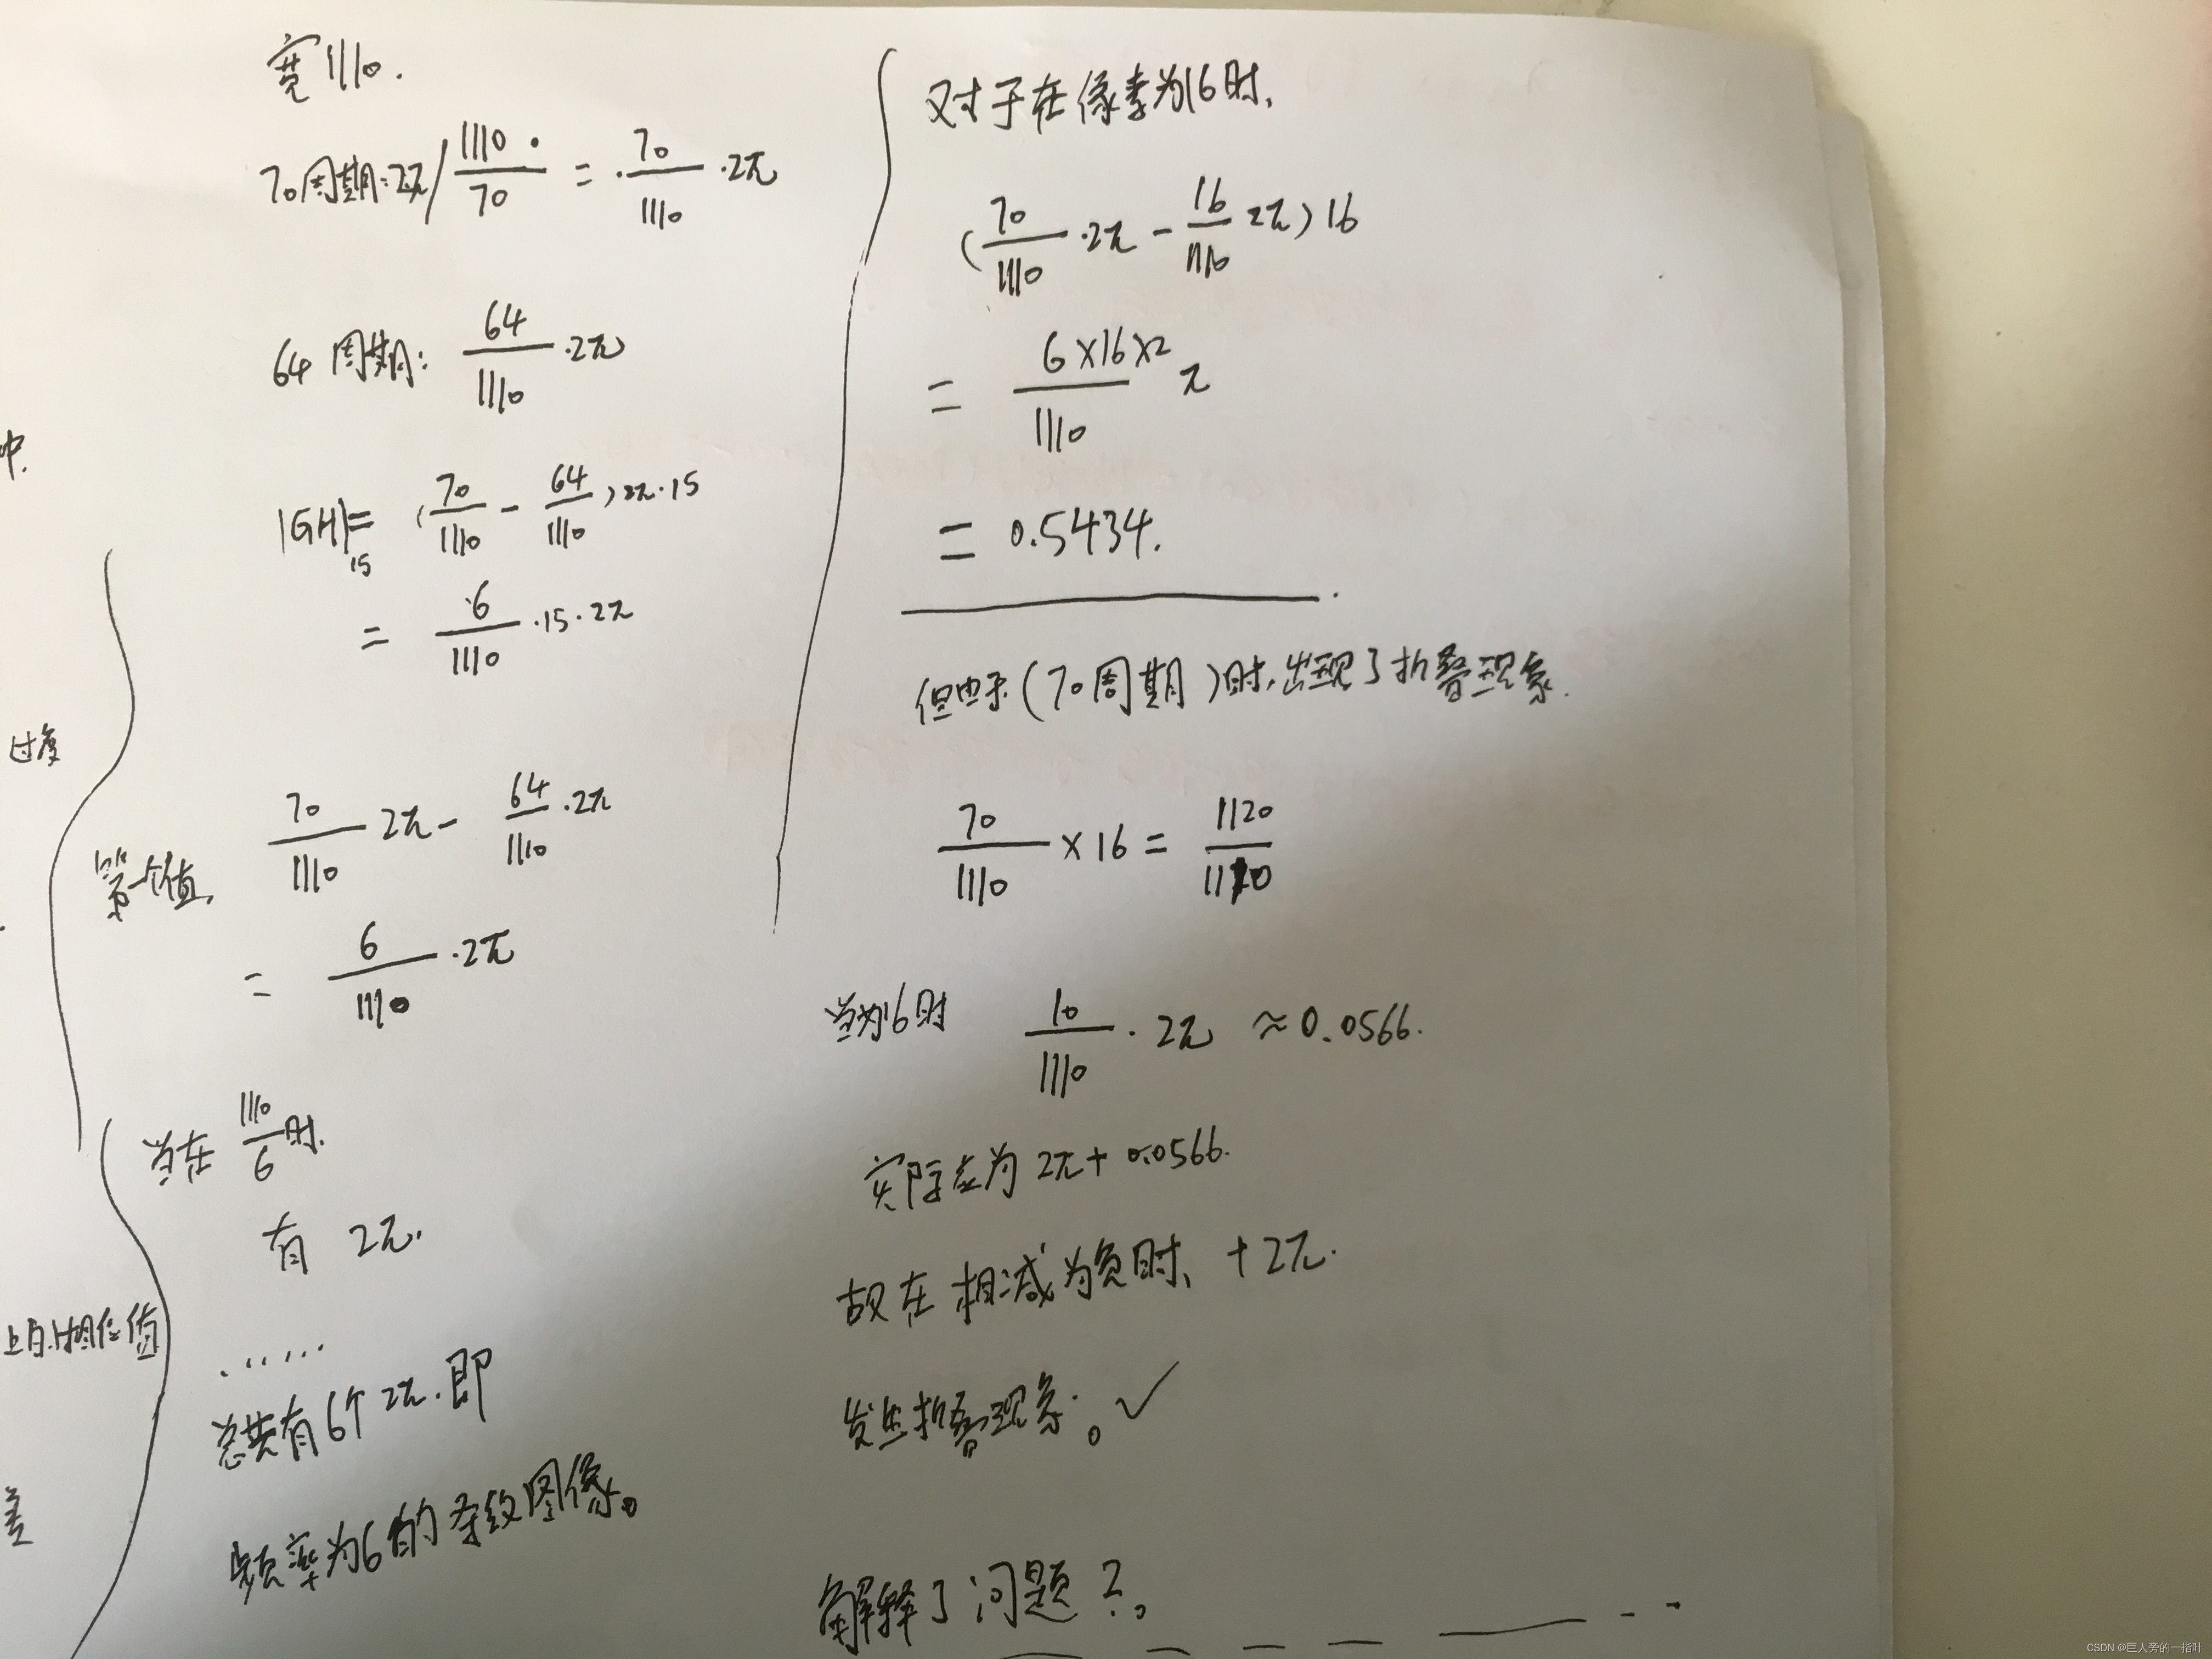 宽1110.
70周期:2π/ 1110/70 = 70/1110 · 2π
64周期: 64/1110 · 2π
|GH|15 = (70/1110 - 64/1110) 2π · 15
= 6/1110 · 15 · 2π
第一个值, 70/1110 2π - 64/1110 · 2π
= 6/1110 · 2π
当在 1110/6 时.
有 2π.
......
总共有6个2π.即
频率为6的条纹图像。
对于在像素为16时,
(70/1110 · 2π - 16/1110 2π) 16
= 6×16×2/1110 π
= 0.5434.
但由于(70周期)时,出现了折叠现象.
70/1110 × 16 = 1120/1110
当为16时 10/1110 · 2π ≈ 0.0566.
实际应为 2π + 0.0566.
故在相减为负时、+2π.
发生折叠现象。✓
解释了问题2。
中.
过度
相位值
差
CSDN @巨人旁的一指叶